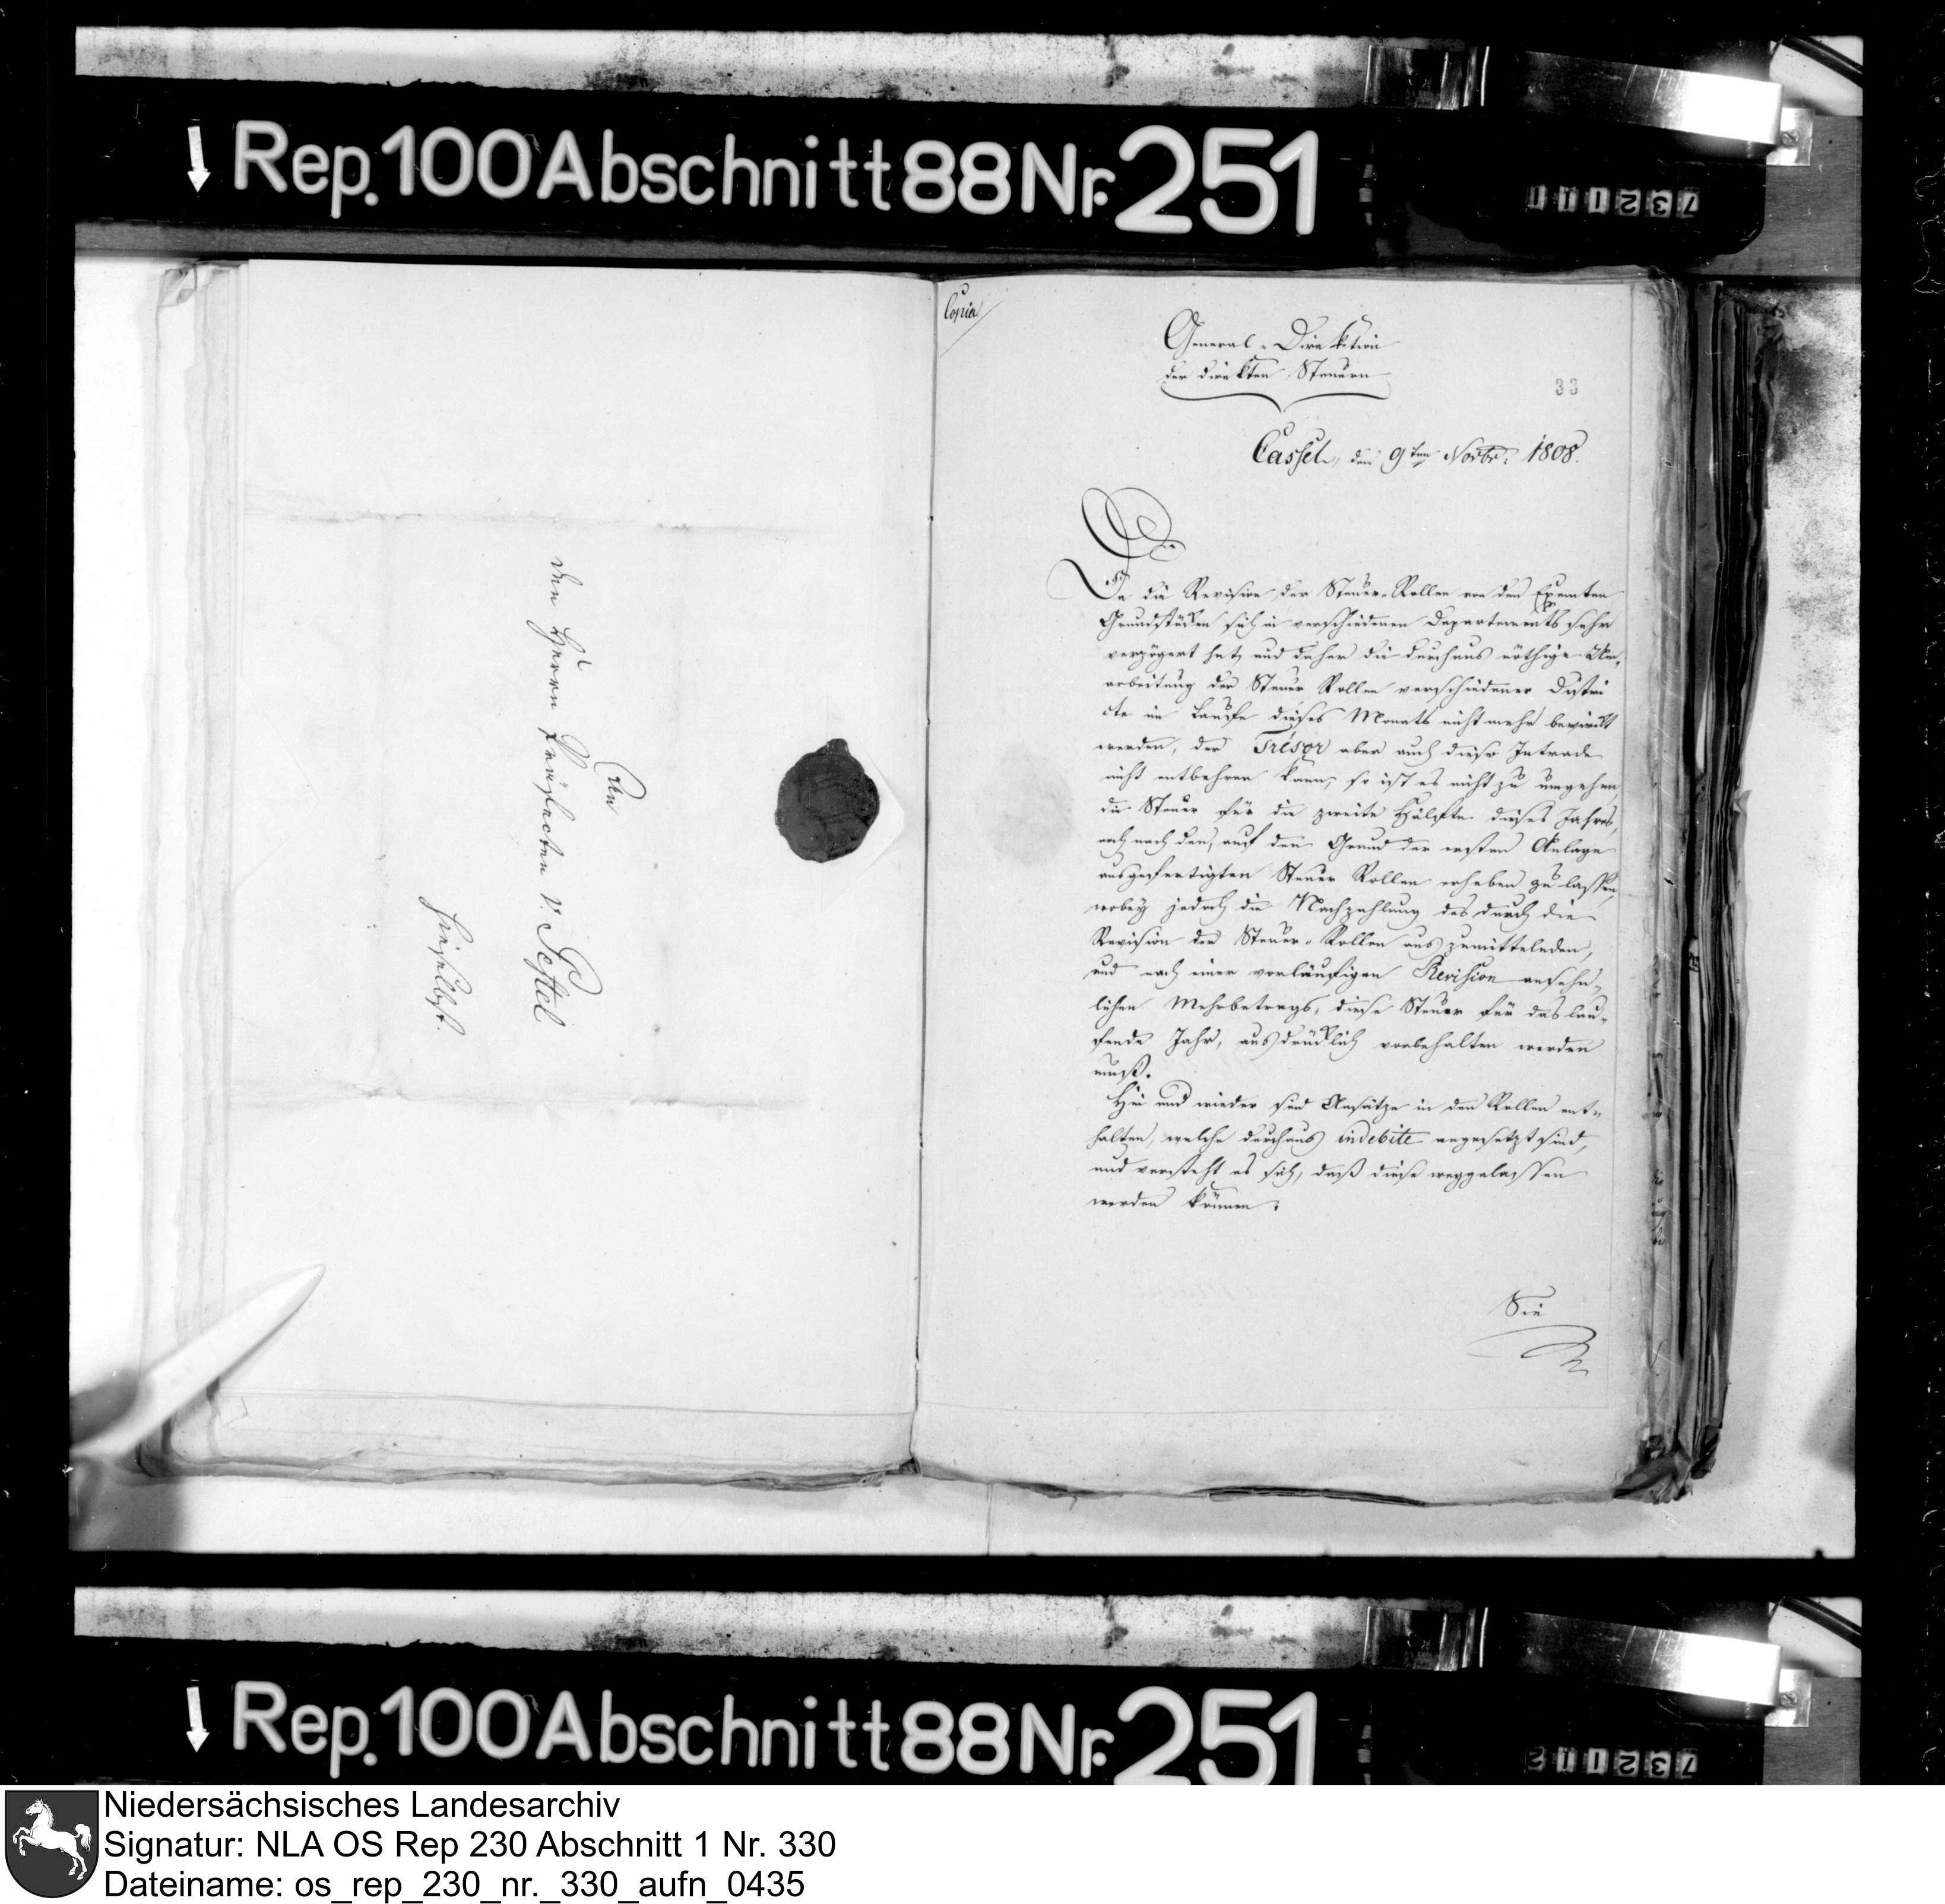 Rep. 100 Abschnitt 88 Nr. 251
An
den Herrn Präfecten v. Pestel
hieselbst.
Copia
General-Direktion
der direkten Steuern
33
Cassel, den 9ten Novbr. 1808.
Da die Revision der Steuer-Rollen von den Exemten
Grundstücken sich in verschiedenen Departements sehr
verzögert hat, und daher die durchaus nöthige Um-
arbeitung der Steuer Rollen verschiedener Distri
cte im Laufe dieses Monats nicht mehr bewirkt
werden, der Trésor aber auch diese Intrade
nicht entbehren kann, so ist es nicht zu umgehen,
die Steuer für die zweite Hälfte dieses Jahres,
noch nach den, auf den Grund der ersten Anlage
ausgefertigten Steuer Rollen erheben zu lassen,
wobey jedoch die Nachzahlung des durch die
Revision der Steuer-Rollen auszumittelnden,
und nach einer vorläufigen Revision ansehn-
lichen Mehrbetrags, dieser Steuer für das lau-
fende Jahr, ausdrücklich vorbehalten werden
muß.
Hin und wieder sind Ansätze in den Rollen ent-
halten, welche durchaus indebite angesetzt sind,
und versteht es sich, daß diese weggelassen
werden können.
Sie
Rep. 100 Abschnitt 88 Nr. 251
Niedersächsisches Landesarchiv
Signatur: NLA OS Rep 230 Abschnitt 1 Nr. 330
Dateiname: os_rep_230_nr._330_aufn_0435